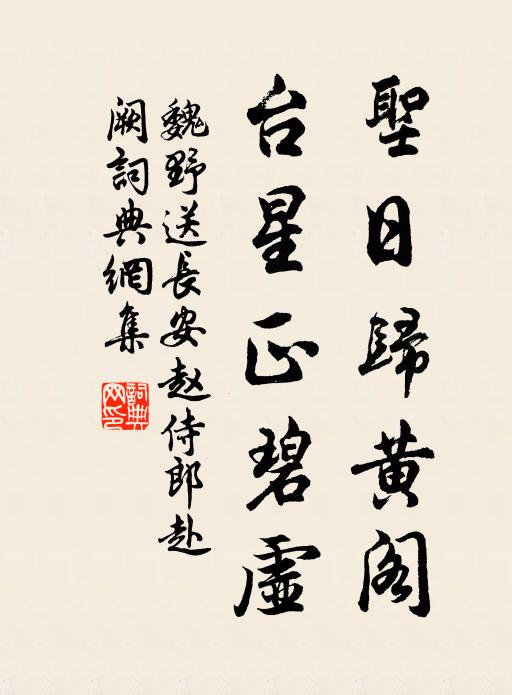 聖日歸黃阁
台星正碧虛
魏野送長安赵侍郎赴
阙詞典網集
詞典網印